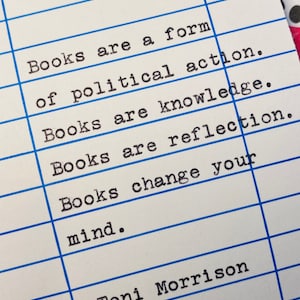 Books are a form
of political action.
Books are knowledge.
Books are reflection.
Books change your
mind.
Toni Morrison